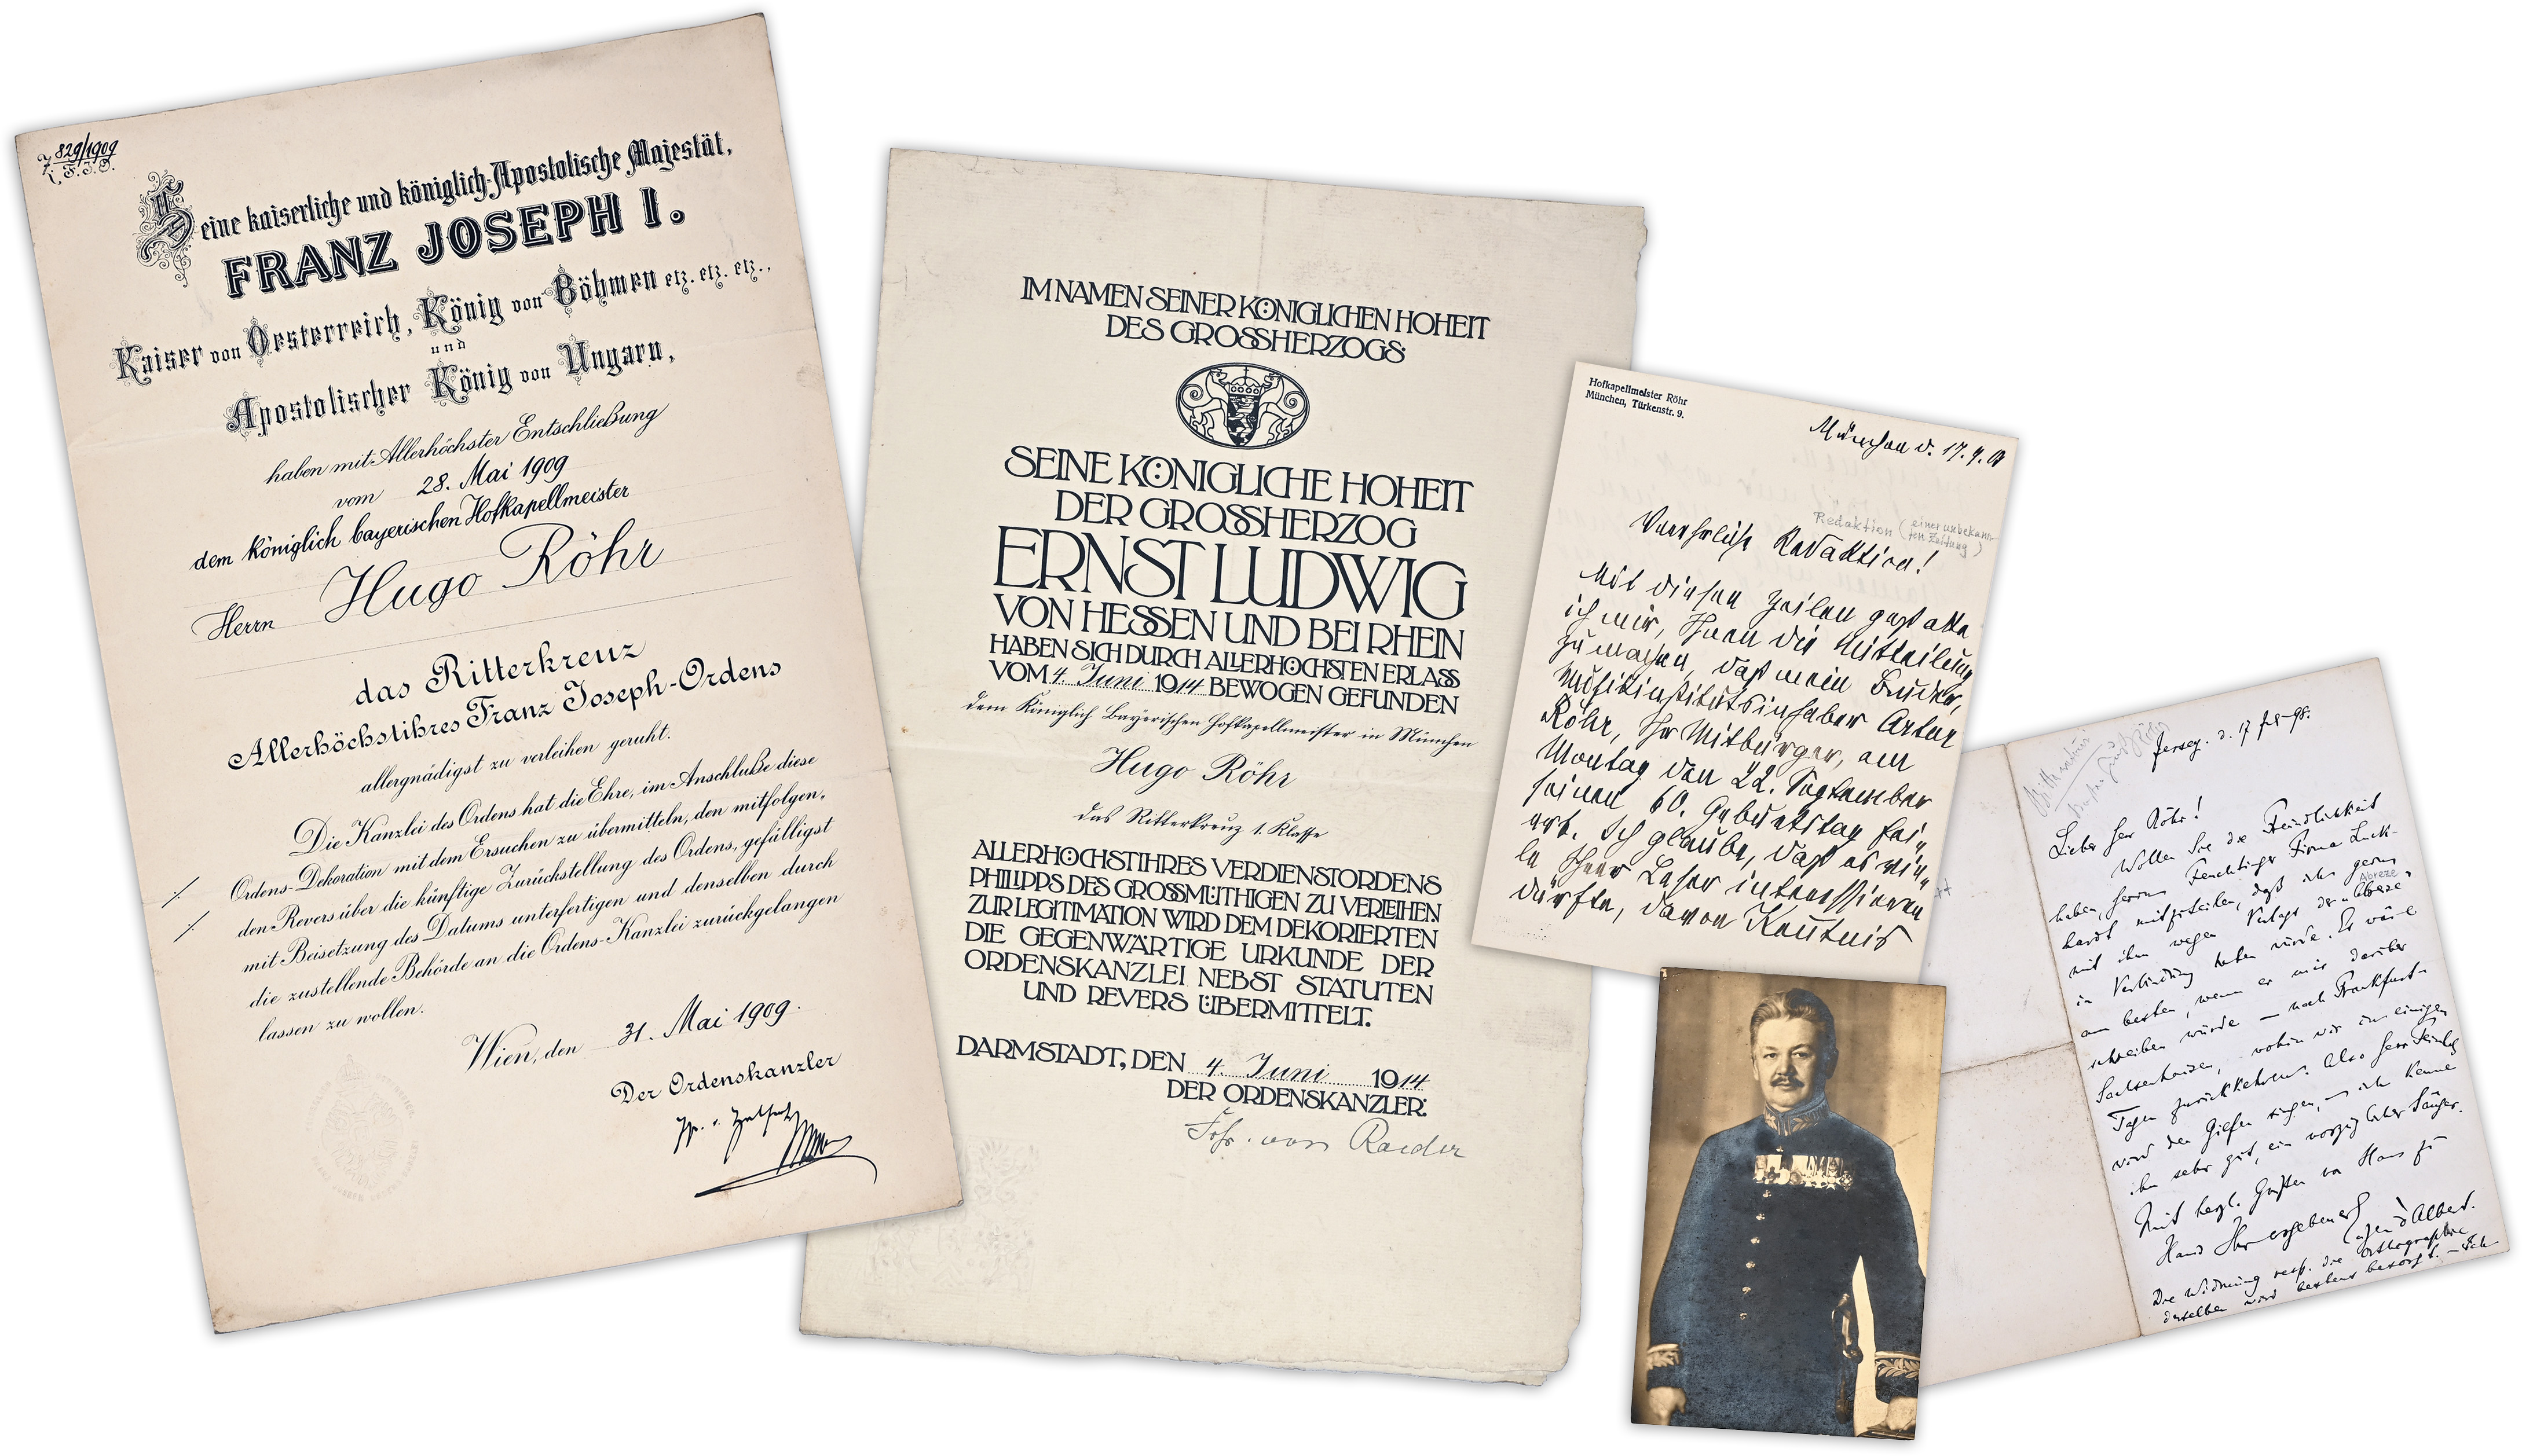 829/1909
F.J.O.
Seine kaiserliche und königlich-Apostolische Majestät,
FRANZ JOSEPH I.
Kaiser von Oesterreich, König von Böhmen etz. etz. etz.,
und
Apostolischer König von Ungarn,
haben mit Allerhöchster Entschließung
vom 28. Mai 1909
dem königlich bayerischen Hofkapellmeister
Herrn Hugo Röhr
das Ritterkreuz
Allerhöchstihres Franz Joseph-Ordens
allergnädigst zu verleihen geruht.
Die Kanzlei des Ordens hat die Ehre, im Anschluße diese
Ordens-Dekoration mit dem Ersuchen zu übermitteln, den mitfolgen-
den Revers über die künftige Zurückstellung des Ordens, gefälligst
mit Beisetzung des Datums unterfertigen und denselben durch
die zustellende Behörde an die Ordens-Kanzlei zurückgelangen
lassen zu wollen.
Wien, den 31. Mai 1909.
Der Ordenskanzler
IM NAMEN SEINER KÖNIGLICHEN HOHEIT
DES GROSSHERZOGS
SEINE KÖNIGLICHE HOHEIT
DER GROSSHERZOG
ERNST LUDWIG
VON HESSEN UND BEI RHEIN
HABEN SICH DURCH ALLERHÖCHSTEN ERLASS
VOM 4. Juni 1914 BEWOGEN GEFUNDEN
dem Königlich Bayerischen Hofkapellmeister in München
Hugo Röhr
das Ritterkreuz 1. Klasse
ALLERHÖCHSTIHRES VERDIENSTORDENS
PHILIPPS DES GROSSMÜTHIGEN ZU VERLEIHEN
ZUR LEGITIMATION WIRD DEM DEKORIERTEN
DIE GEGENWÄRTIGE URKUNDE DER
ORDENSKANZLEI NEBST STATUTEN
UND REVERS ÜBERMITTELT.
DARMSTADT, DEN 4. Juni 1914
DER ORDENSKANZLER:
Frhr. von
Hofkapellmeister Röhr
München, Türkenstr. 9.
München d. 17.
Redaktion (einer unbekann-
ten Zeitung)
Verehrliche Redaktion!
Mit diesen Zeilen gestatte
ich mir, Ihnen die Mitteilung
zu machen, daß mein Bruder,
Musikinstitutsinhaber Artur
Röhr, Ihr Mitbürger, am
Montag den 22. September
seinen 60. Geburtstag fei-
ert. Ich glaube, daß es vie-
le Ihrer Leser interessieren
dürfte, davon Kenntnis
Jersey. d. 17
Lieber Herr Röhr!
Wollen Sie die Freundlichkeit
haben, Herrn Feuchtinger Firma Luck-
hardt mitzuteilen, daß ich gerne
mit ihm wegen Verlags der "Abreze"
Abreze
in Verbindung treten würde. Es wäre
am besten, wenn er mir darüber
schreiben würde – nach Frankfurt-
Sachsenhausen, wohin wir in einigen
Tagen zurückkehren. Also Herr
wird den Giesen singen, – ich kenne
ihn sehr gut, ein vorzüglicher Sänger.
Mit herzl. Grüßen von Haus zu
Haus Ihr ergebener
Eugen d'Albert.
Die Widmung resp. die Orthographie
derselben wird bestens besorgt. –